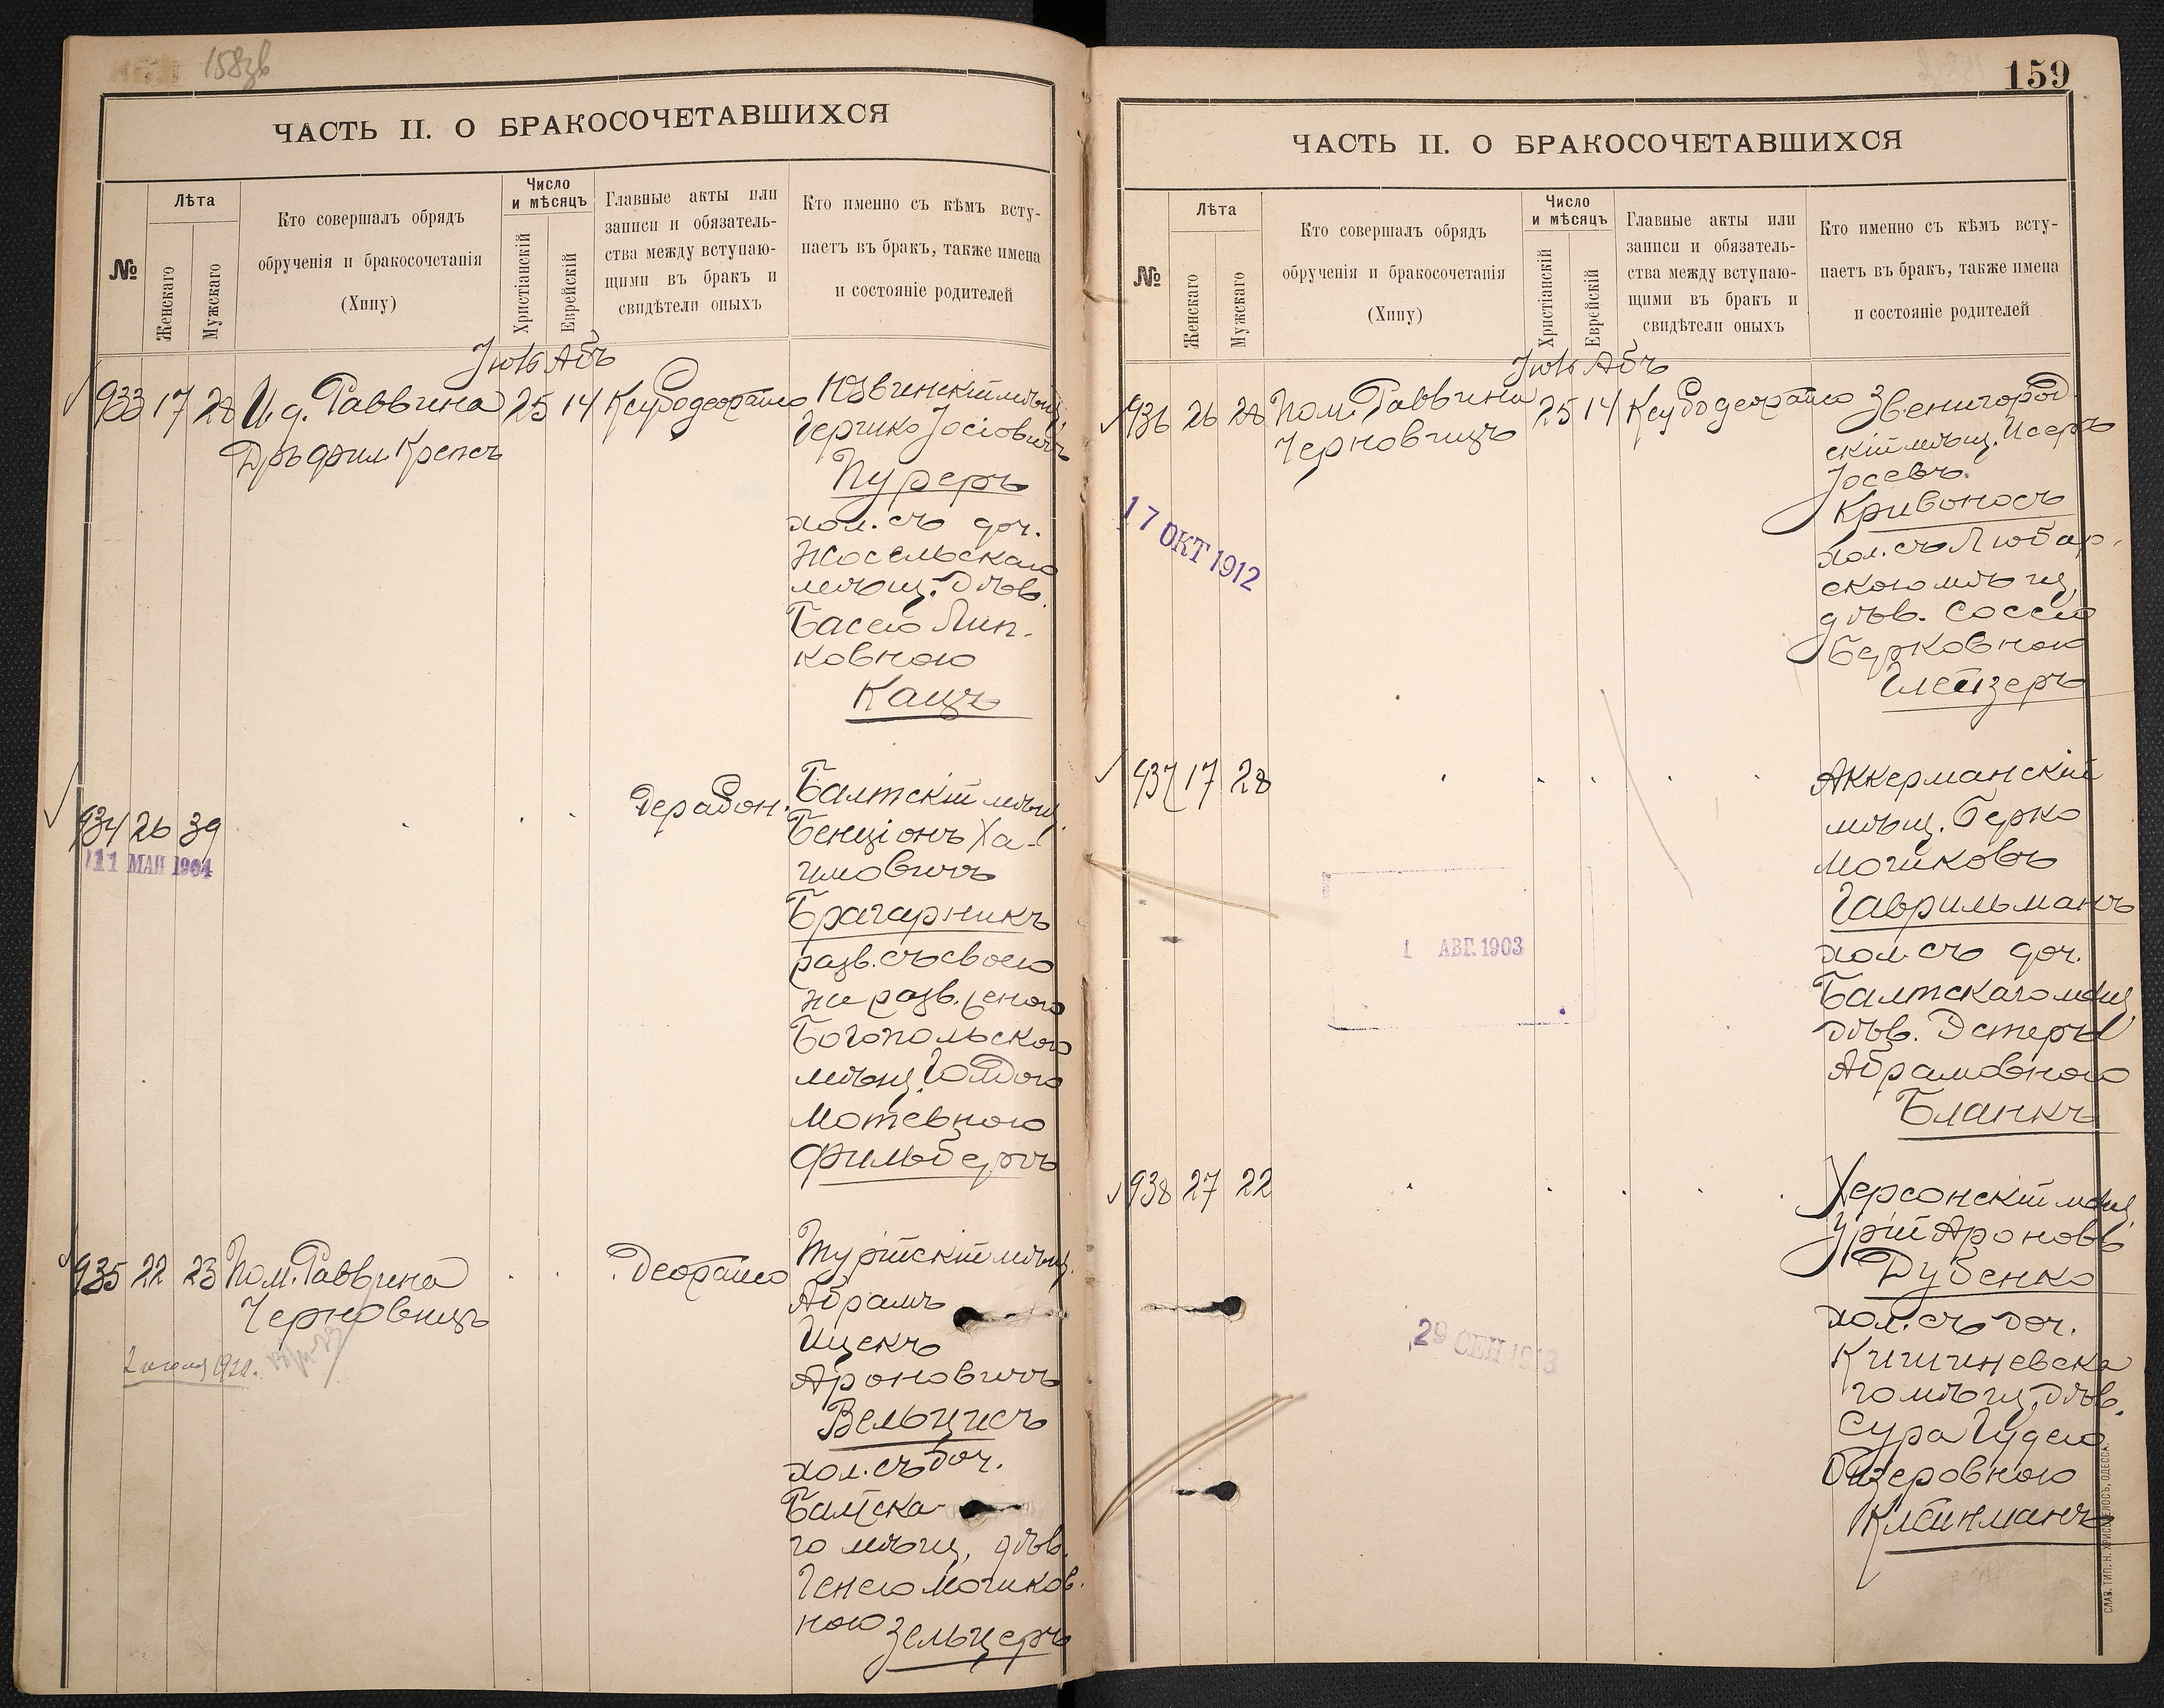 158зв
ЧАСТЬ II. О БРАКОСОЧЕТАВШИХСЯ
№
Лѣта
Женскаго
Мужскаго
Кто совершалъ обрядъ
обрученія и бракосочетанія
(Хипу)
Число
и мѣсяцъ
Христіанскій
Еврейскій
Главные акты или
записи и обязатель-
ства между вступаю-
щими въ бракъ и
свидѣтели оныхъ
Кто именно съ кѣмъ всту-
паетъ въ бракъ, также имена
и состояніе родителей
Абъ
933 17 28 И. д. Раввина 25 14
Кре псъ
Іосіовичъ
Пуреръ
хол. съ доч.
мѣщ. дѣв.
Басею Лип-
ковною
Кацъ
934 26 39
11 МАЯ 1904
Балтскій мѣщ.
Бенціонъ Ха-
имовичъ
Брагарникъ
разв. съ своею
же разв. женою
Богопольскою
мѣщ. Голдою
Мотевною
Фильберъ
935 22 23 Пом. Раввина
Черновицъ
мѣщ.
Абрамъ
Ицекъ
Ароновичъ
Вельцисъ
хол. съ доч.
Балтска-
го мѣщ. дѣв.
Генею Мошков-
ною Зельцеръ
159
ЧАСТЬ II. О БРАКОСОЧЕТАВШИХСЯ
№
Лѣта
Женскаго
Мужскаго
Кто совершалъ обрядъ
обрученія и бракосочетанія
(Хипу)
Число
и мѣсяцъ
Христіанскій
Еврейскій
Главные акты или
записи и обязатель-
ства между вступаю-
щими въ бракъ и
свидѣтели оныхъ
Кто именно съ кѣмъ всту-
паетъ въ бракъ, также имена
и состояніе родителей
Абъ
936 26 28 Пом. Раввина 25 14
Черновицъ
Звенигород-
скій мѣщ. Исеръ
Іосевъ
Кривоносъ
хол. съ Любар-
скою мѣщ.
дѣв. Соссею
Берковною
Глейзеръ
17 ОКТ 1912
937 17 28
Аккерманскій
мѣщ. Берко
Мошковъ
Гаврильманъ
хол. съ доч.
Балтскаго мѣщ.
дѣв. Эстеры
Абрамовною
Бланкъ
1 АВГ. 1903
938 27 22
Херсонскій мѣщ.
Урій Ароновъ
Дубенко
хол. съ доч.
Кишиневска
го мѣщ. дѣв.
Сура Гудею
Клейнманъ
29 СЕН 1913
СЛАВ. ТИП. Н. ХРИСОГЕЛОСЪ, ОДЕССА.